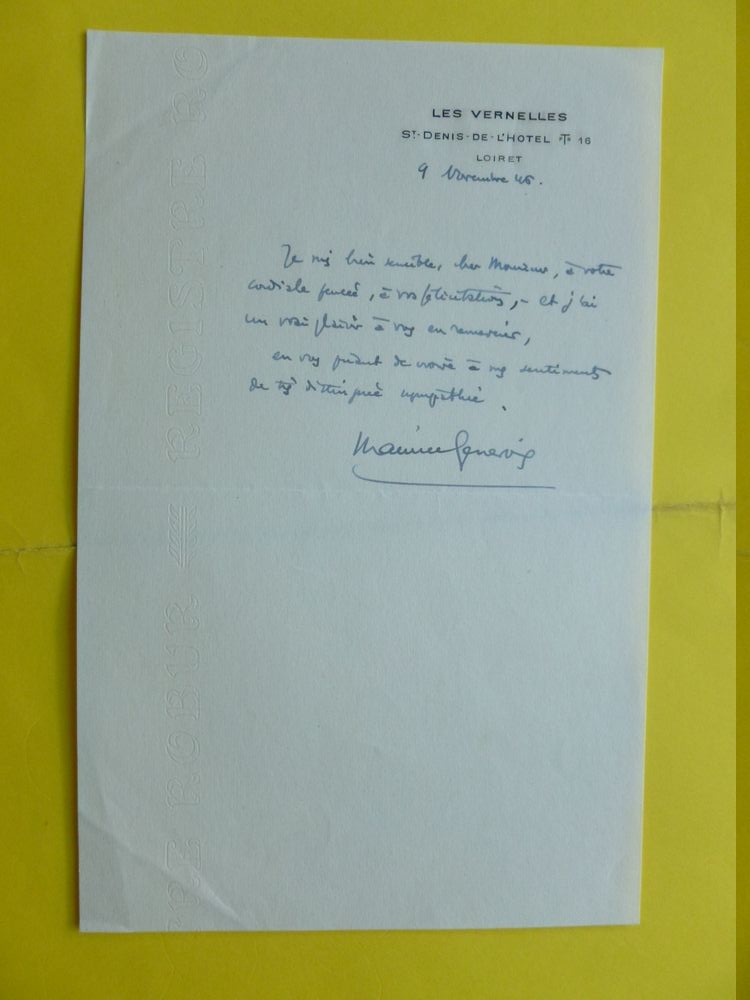 LES VERNELLES
ST-DENIS-DE-L'HOTEL T 16
LOIRET
9 Novembre 46.
Je suis bien sensible, cher Monsieur, à votre
cordiale pensée, à vos félicitations, - et j'ai
un vrai plaisir à vous en remercier,
en vous priant de croire à mes sentiments
de très distinguée sympathie.
Maurice Genevoix
REGISTRE RO
TRE ROBUR